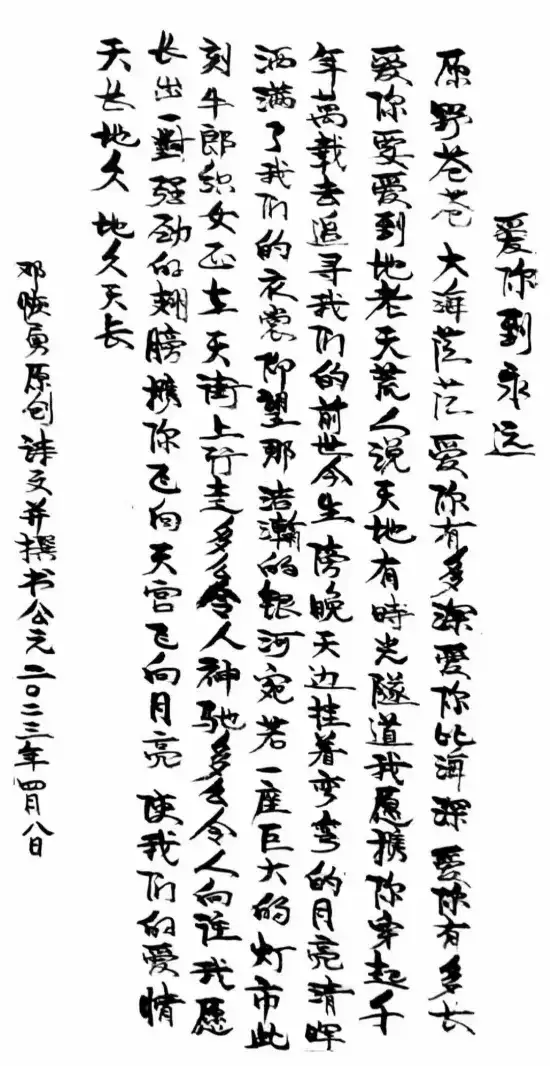 爱你到永远
原野苍苍 大海茫茫 愛你有多深 愛你比海深 愛你有多长
爱你要爱到地老天荒人说天地有時光隧道我愿携你穿起千
年萬载去追寻我们的前世今生 傍晚天边挂着弯弯的月亮清晖
洒满了我们的衣裳仰望那浩瀚的银河宛若一座巨大的灯市此
刻牛郎织女正在天街上行走多么令人神驰多么令人向往我愿
长出一對强劲的翅膀携你飞向天宫飞向月亮 使我们的愛情
天长地久 地久天长
邓恢勇原创诗文并撰书公元二〇二三年四月八日